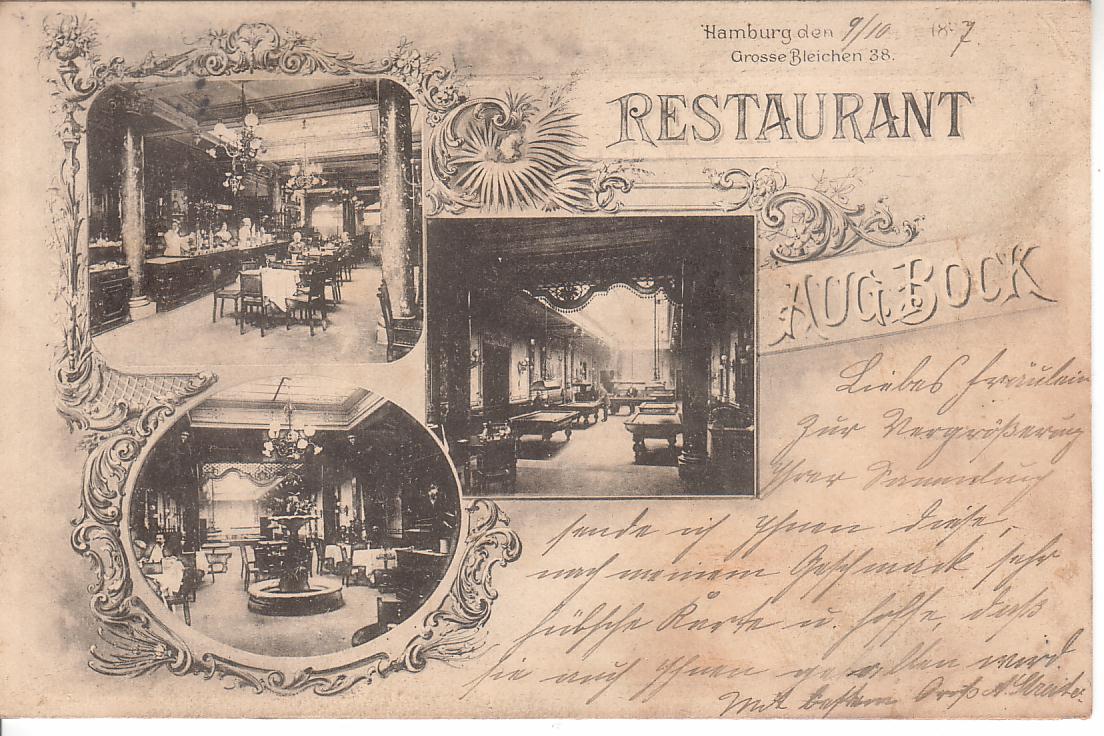 Hamburg den 9/10 1897
Grosse Bleichen 38.
RESTAURANT
AUG. BOCK
Liebes Fräulein
Zur Vergrößerung
Ihrer Sammlung
sende ich Ihnen diese,
nach meinem Geschmack sehr
hübsche Karte u. hoffe, daß
sie auch Ihnen gefallen wird.
Mit bestem Gruß A.